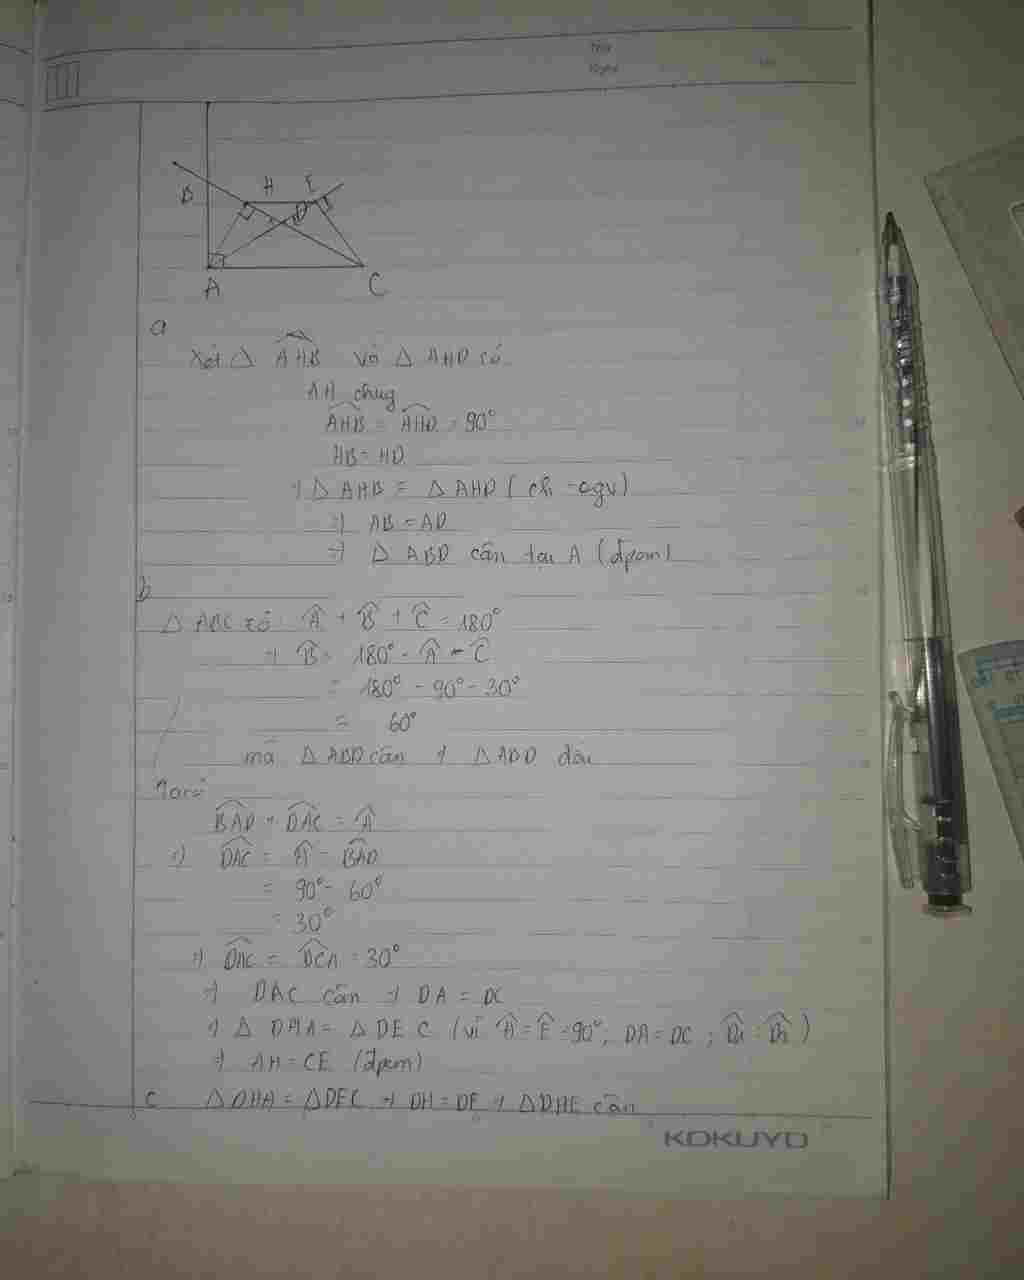 B H E
D
A C
a
Xét △ AHB và △ AHD có
AH chug
AHB = AHD = 90°
HB = HD
=> △ AHB = △ AHD ( ch - cgv)
=> AB = AD
=> △ ABD cân tại A (đpcm)
b
△ ABC có: Â + B̂ + Ĉ = 180°
=> B̂ = 180° - Â - Ĉ
= 180° - 90° - 30°
= 60°
mà △ ABD cân => △ ABD đều
Ta có:
BAD + DAC = Â
=> DAC = Â - BAD
= 90° - 60°
= 30°
=> DAC = DCA = 30°
=> DAC cân => DA = DC
=> △ DHA = △ DEC (vì Ĥ = Ê = 90°; DA = DC;
=> AH = CE (đpcm)
c △ DHA = △ DEC => DH = DE => △ DHE cân
KOKUYO